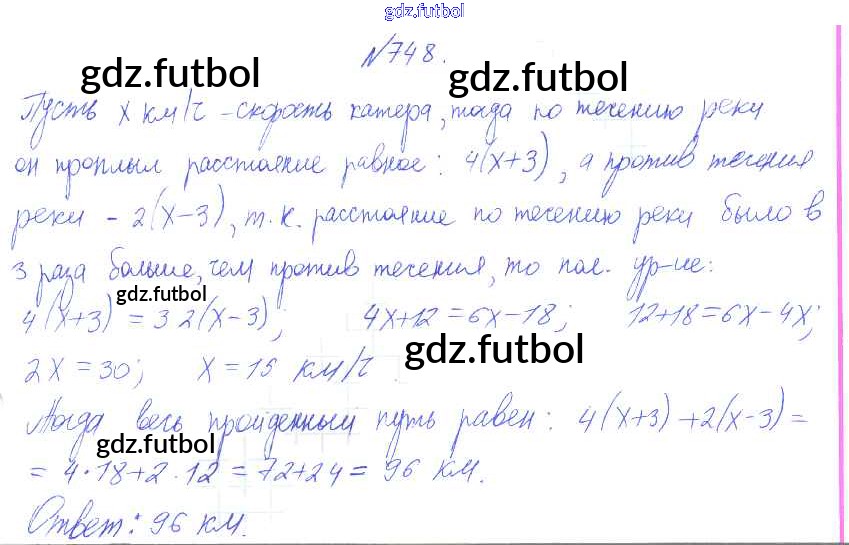 gdz.futbol
№748.
gdz.futbol gdz.futbol
Пусть x км/ч - скорость катера, тогда по течению реки
он проплыл расстояние равное: 4(x+3), а против течения
реки - 2(x-3), т.к. расстояние по течению реки было в
3 раза больше, чем против течения, то пол. ур-ие:
gdz.futbol
4(x+3) = 3 2(x-3); 4x+12=6x-18; 12+18=6x-4x;
gdz.futbol
2x=30; x=15 км/ч.
Тогда весь пройденный путь равен: 4(x+3)+2(x-3)=
gdz.futbol
= 4·18+2·12=72+24= 96 км.
Ответ: 96 км.
gdz.futbol